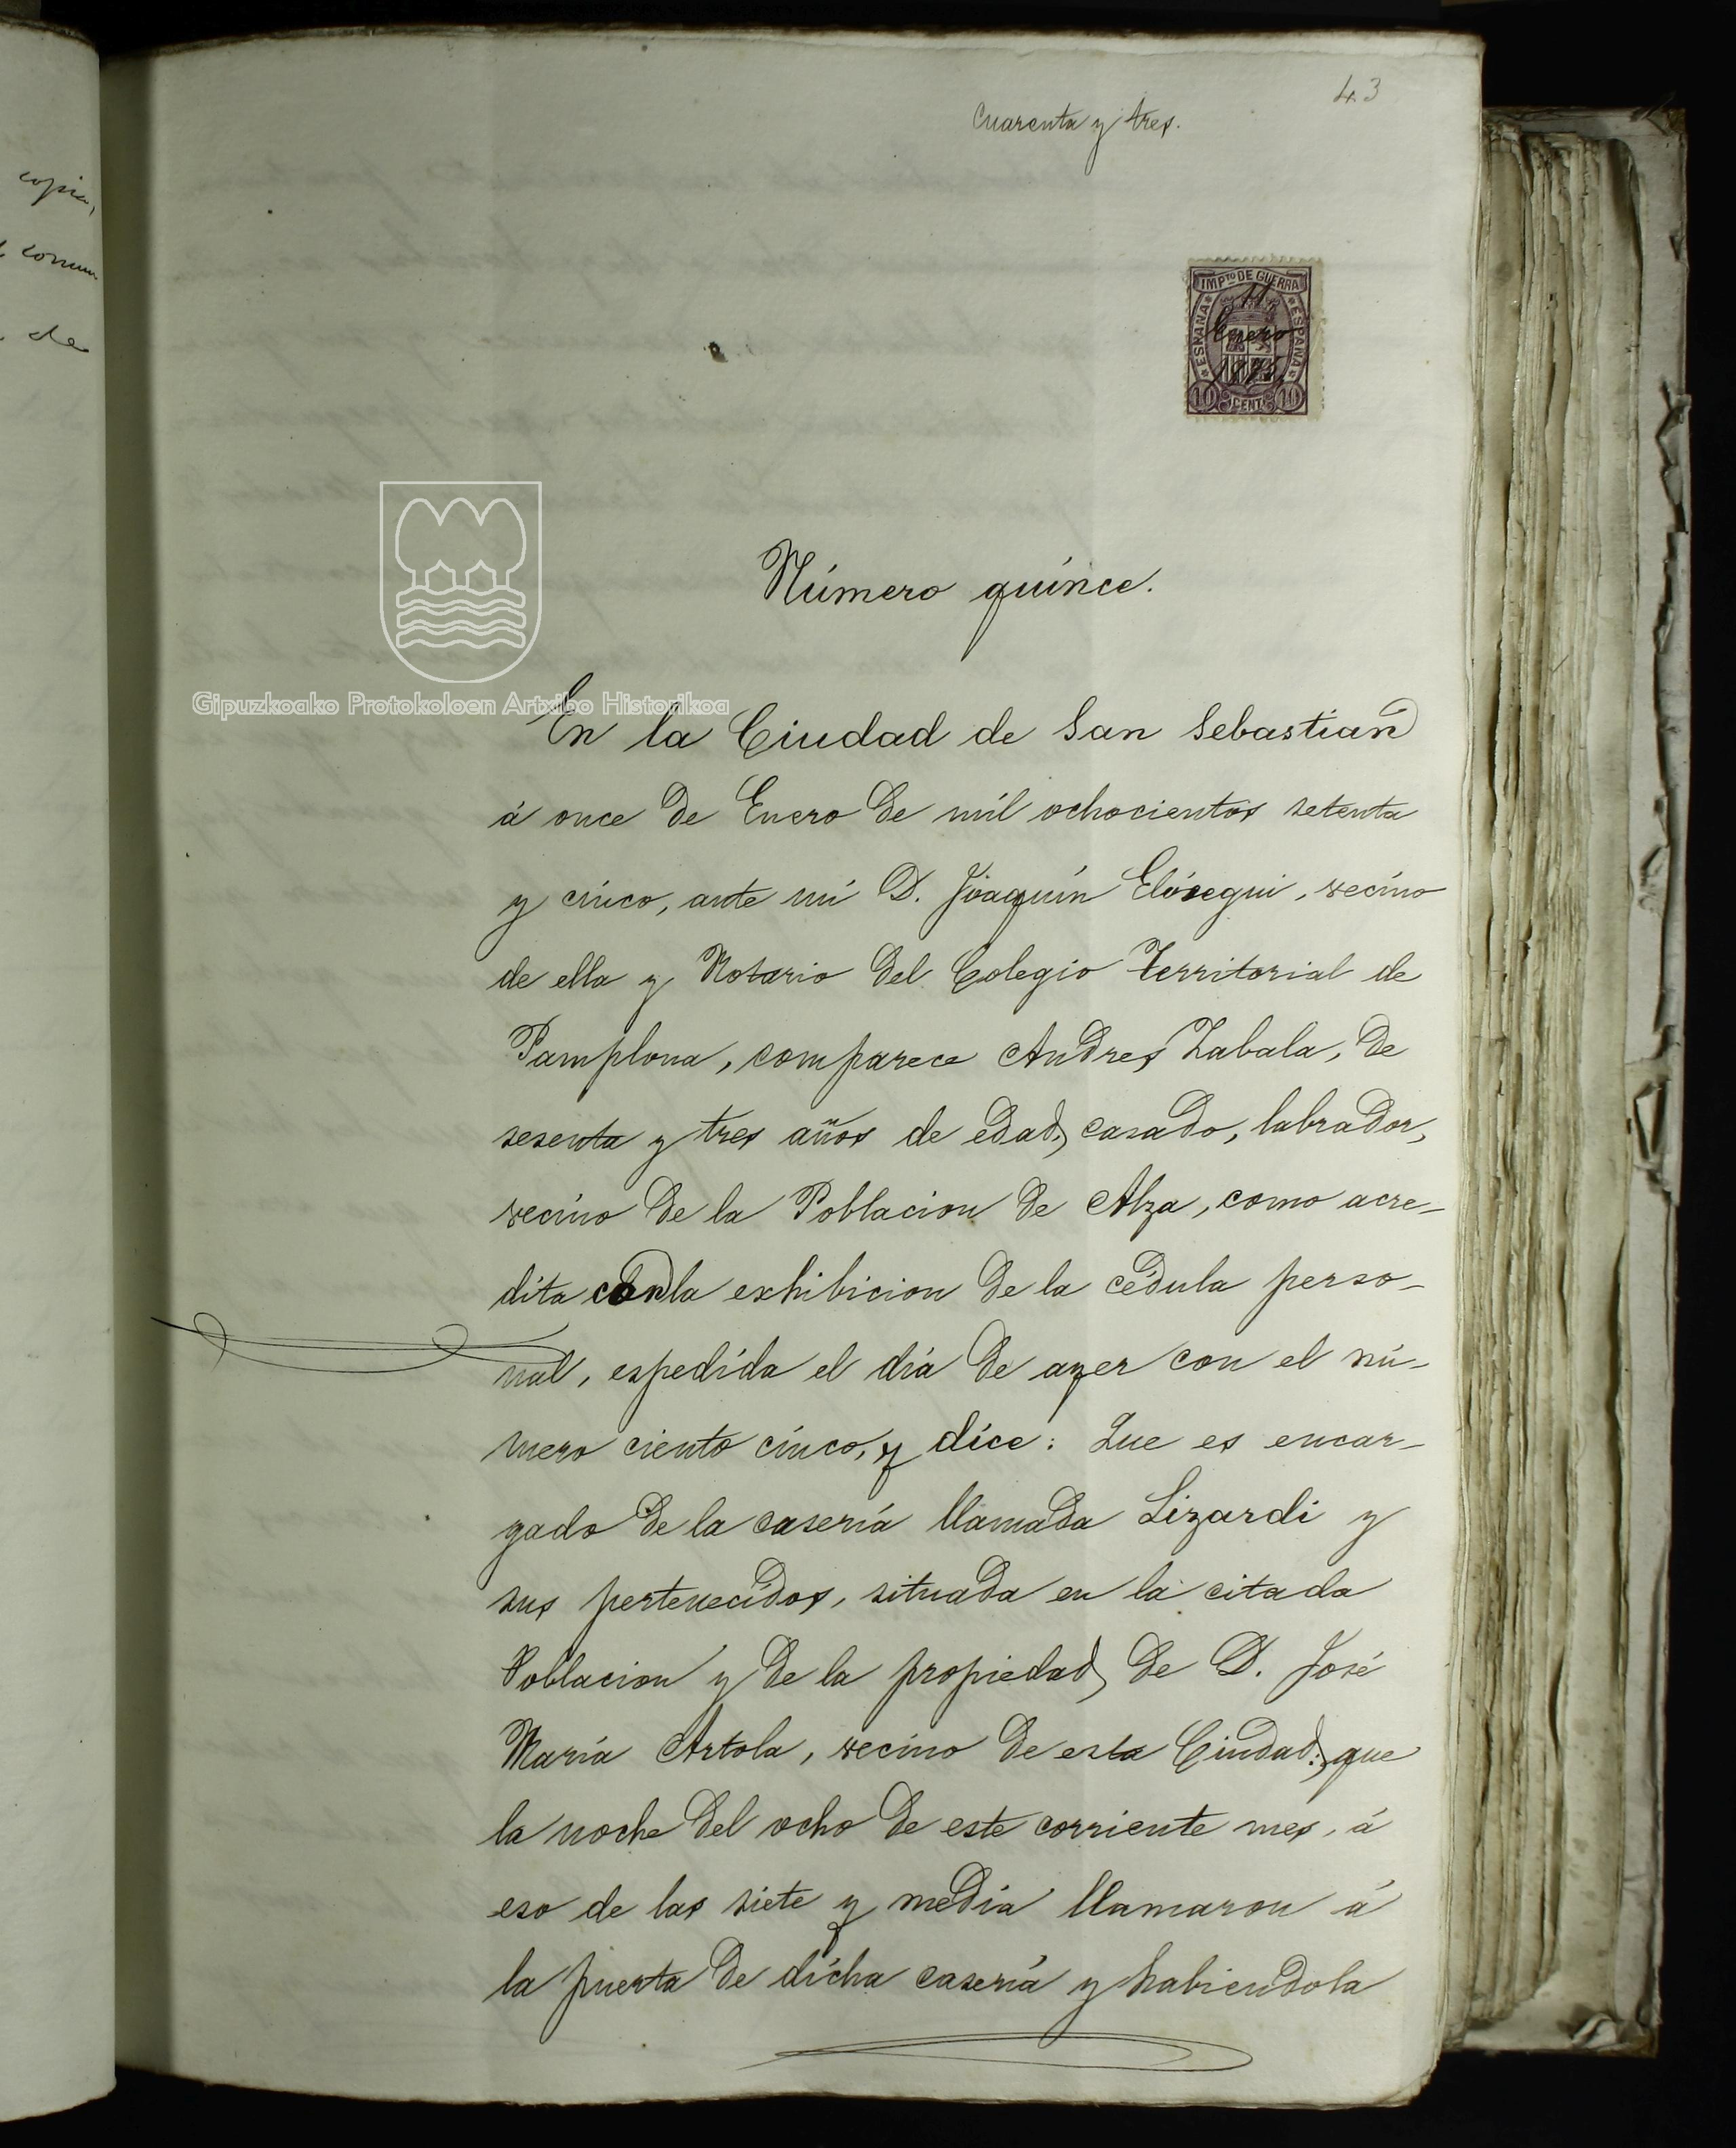 43
Cuarenta y tres.
copia,
comun
de
IMPTO DE GUERRA
ESPAÑA
ESPAÑA
11
Enero
1875
10 CENTS 10
Número quince.
Gipuzkoako Protokoloen Artxibo Historikoa
En la Ciudad de San Sebastian
á once de Enero de mil ochocientos setenta
y cinco, ante mi D. Joaquin Elósegui, vecino
de ella y Notario del Colegio Territorial de
Pamplona, comparece Andres Zabala, de
sesenta y tres años de edad, casado, labrador,
vecino de la Poblacion de Alza, como acre-
dita con la exhibicion de la cédula perso-
nal, espedida el dia de ayer con el nú-
mero ciento cinco, y dice: Que es encar-
gado de la casería llamada Lizardi y
sus pertenecidos, situada en la citada
Poblacion y de la propiedad de D. José
María Artola, vecino de esta Ciudad: que
la noche del ocho de este corriente mes, á
eso de las siete y media llamaron á
la puerta de dicha casería y habiendola